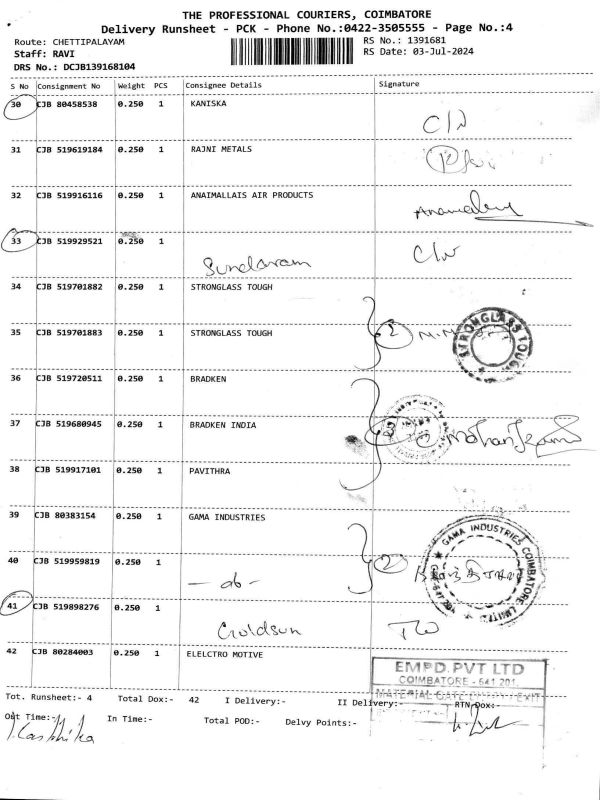 THE PROFESSIONAL COURIERS, COIMBATORE
Delivery Runsheet - PCK - Phone No.:0422-3505555 - Page No.:4
Route: CHETTIPALAYAM RS No.: 1391681
Staff: RAVI RS Date: 03-Jul-2024
DRS No.: DCJB139168104
S No Consignment No Weight PCS Consignee Details Signature
30 CJB 80458538 0.250 1 KANISKA
C/W
31 CJB 519619184 0.250 1 RAJNI METALS
32 CJB 519916116 0.250 1 ANAIMALLAIS AIR PRODUCTS
33 CJB 519929521 0.250 1
Sundaram C/W
34 CJB 519701882 0.250 1 STRONGLASS TOUGH
35 CJB 519701883 0.250 1 STRONGLASS TOUGH
2
STRONGLASS TOUGH
36 CJB 519720511 0.250 1 BRADKEN
37 CJB 519680945 0.250 1 BRADKEN INDIA
38 CJB 519917101 0.250 1 PAVITHRA
39 CJB 80383154 0.250 1 GAMA INDUSTRIES
GAMA INDUSTRIES COIMBATORE LIMITED
40 CJB 519959819 0.250 1
- do -
2
41 CJB 519898276 0.250 1
Goldsun
42 CJB 80284003 0.250 1 ELELCTRO MOTIVE
EMPD.PVT LTD
COIMBATORE - 641 201.
MATERIAL GATE ENTRY / EXIT
Tot. Runsheet:- 4 Total Dox:- 42 I Delivery:- II Delivery:- RTN Dox:-
Out Time:- In Time:- Total POD:- Delvy Points:-